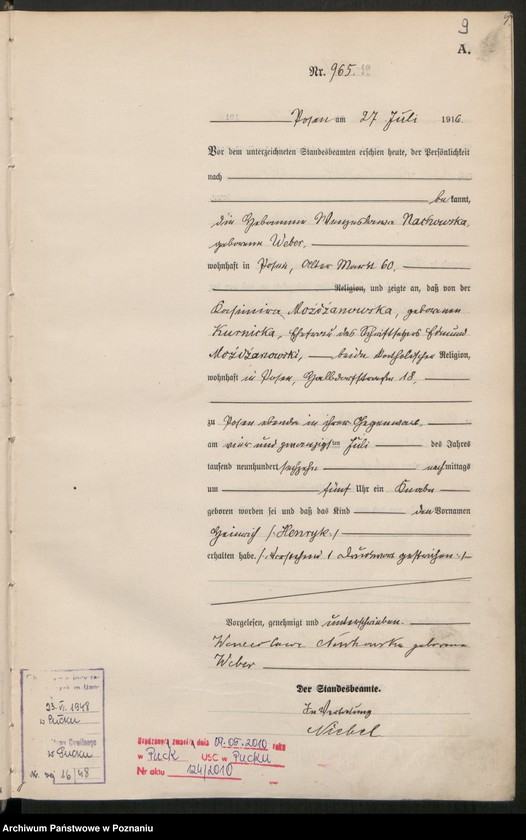 9
A.
Nr. 965.
Posen am 27 Juli 1916.
Vor dem unterzeichneten Standesbeamten erschien heute, der Persönlichkeit
nach
be kannt,
die Hebamme Nachowska,
geborene Weber,
wohnhaft in Posen, Alter Markt 60,
Religion, und zeigte an, daß von der
Kasimira Możdżanowska, geborenen
Kurnicka, Ehefrau des Schriftsetzers Edmund
Możdżanowski, beide katholischer Religion,
wohnhaft in Posen, Halbdorfstraße 18,
zu Posen ebenda in ihrer Gegenwart
am vier und zwanzigsten Juli des Jahres
tausend neunhundert sechzehn nachmittags
um fünf Uhr ein Knabe
geboren worden sei und daß das Kind den Vornamen
Heinrich /:Henryk:/
erhalten habe. /:Vorstehend 1 Druckwort gestrichen:/
Vorgelesen, genehmigt und unterschrieben.
geborene
Weber
Der Standesbeamte.
In Vertretung
Niebel
23. VI. 1948
w Pucku
w Pucku
Nr. 16/48
dnia 09.05.2010 roku
w Puck USC w Pucku
Nr aktu 124/2010
Archiwum Państwowe w Poznaniu